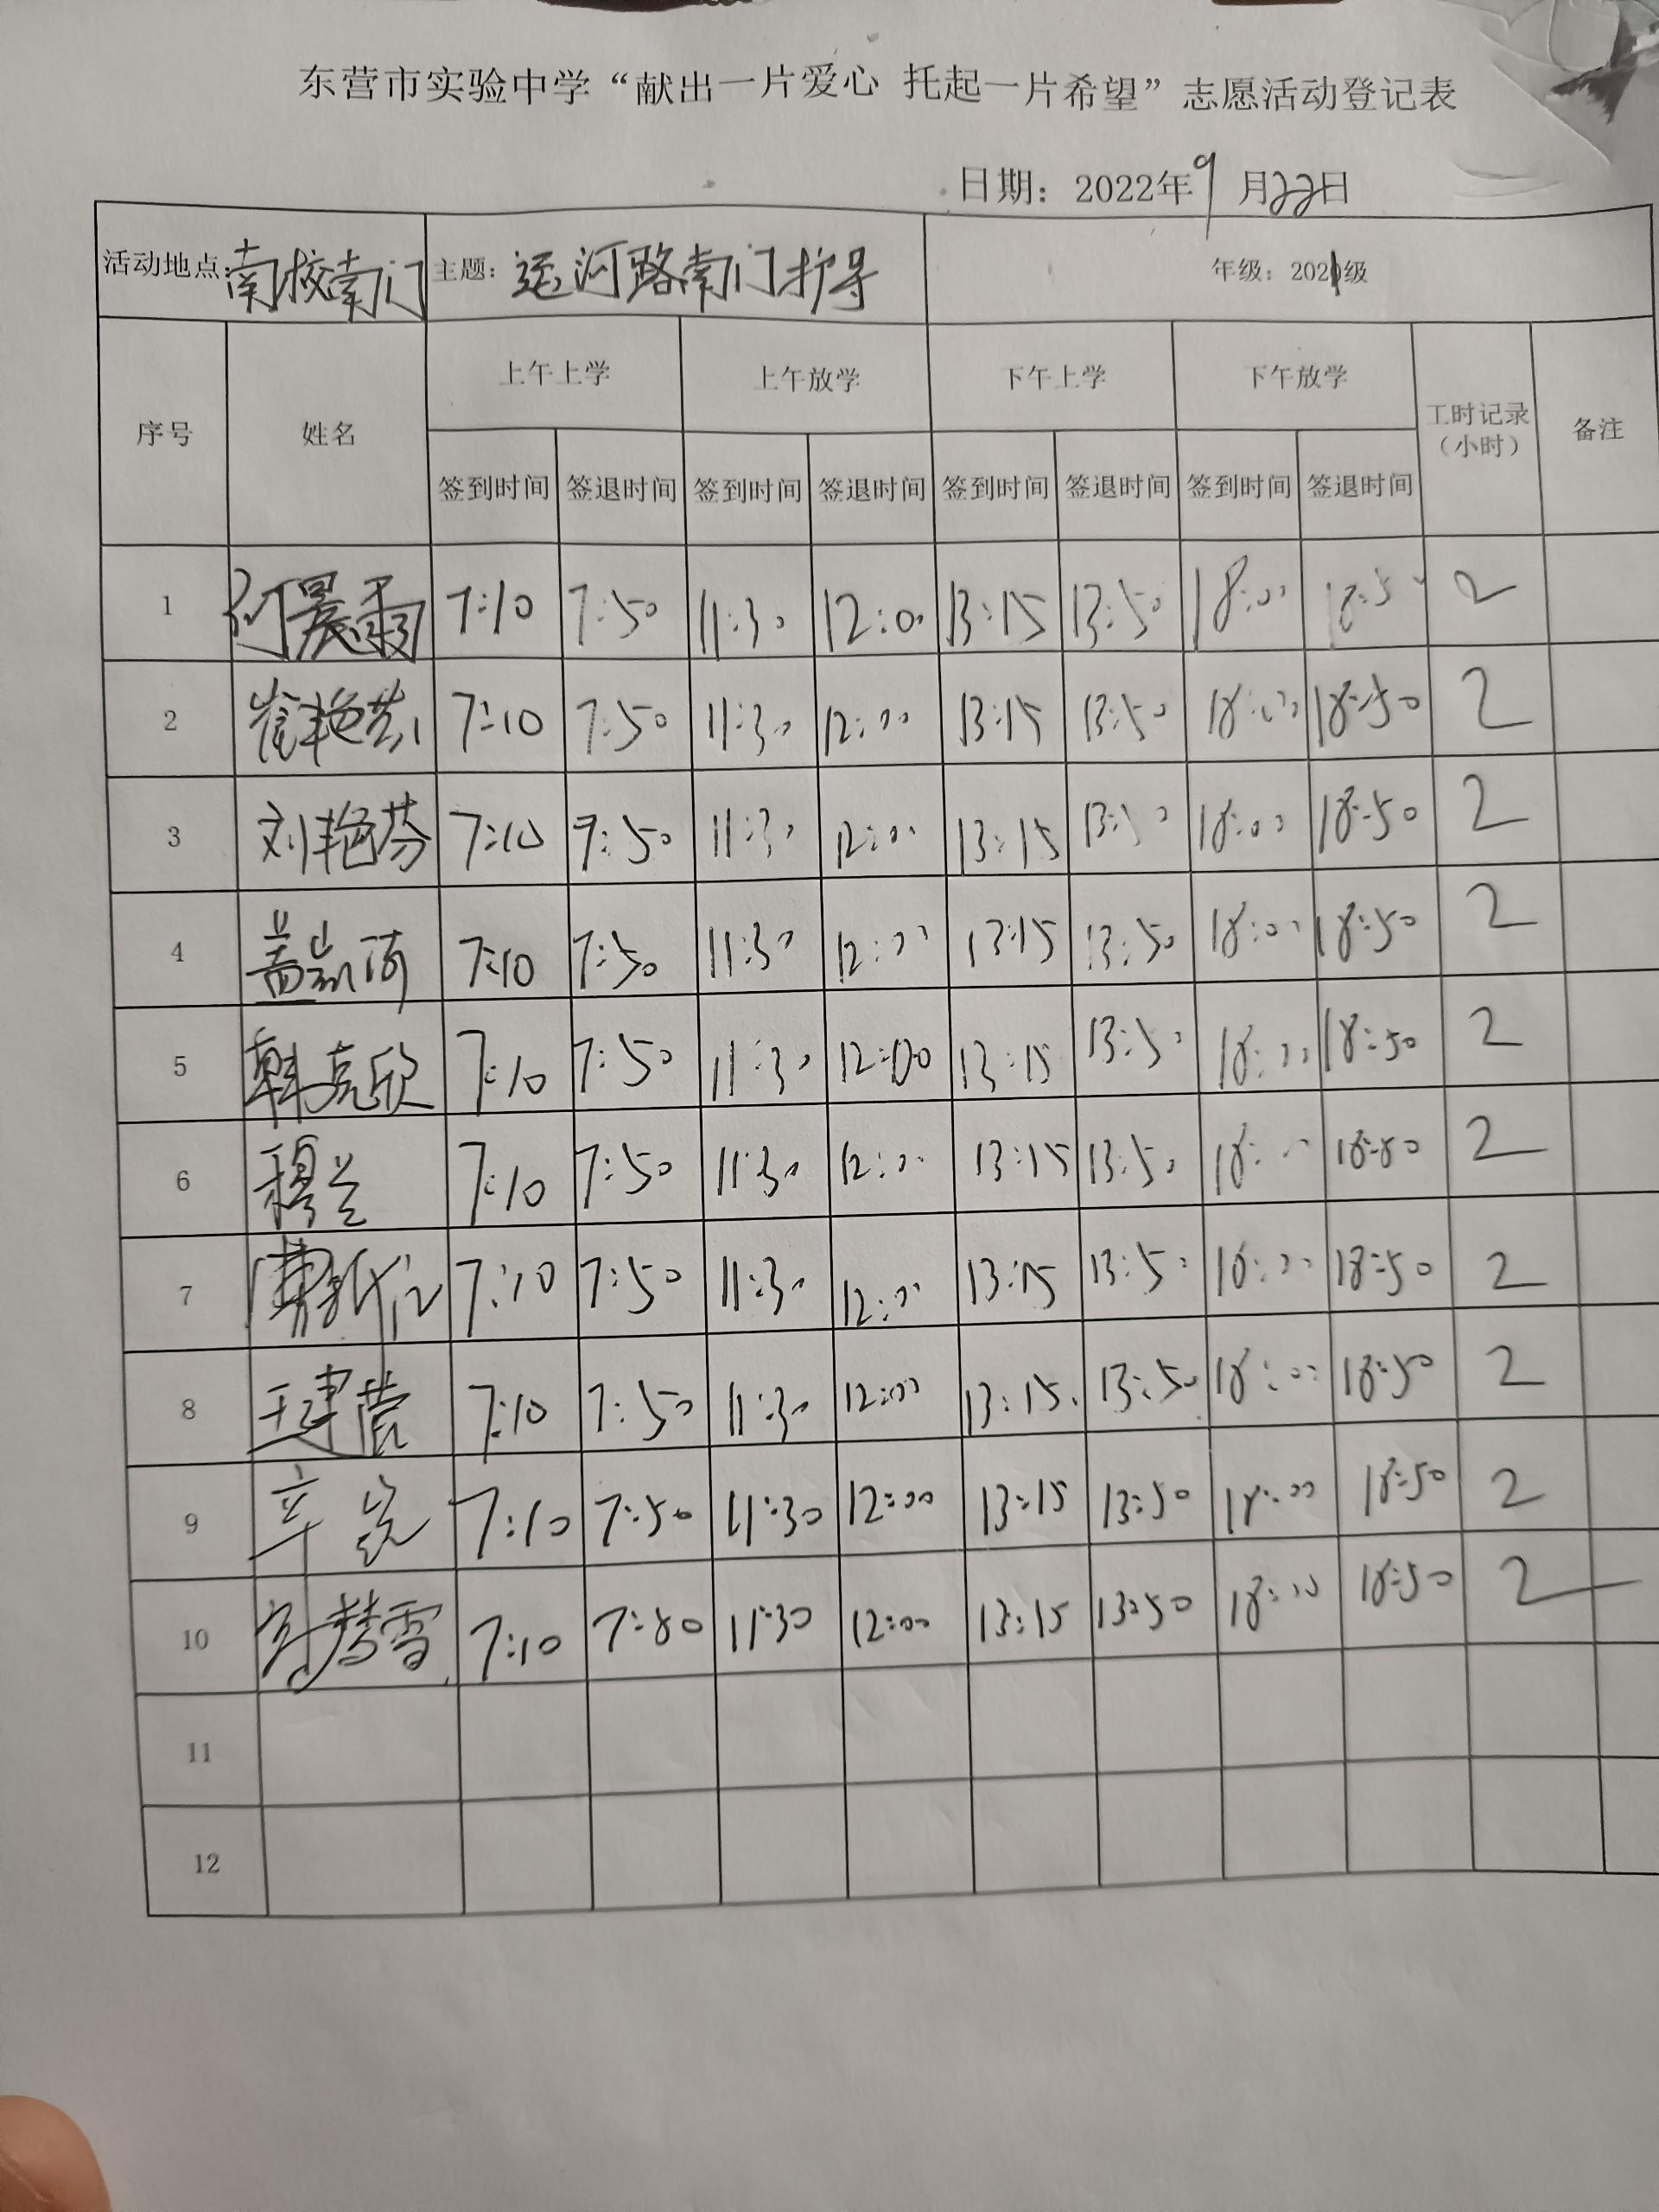 东营市实验中学“献出一片爱心 托起一片希望”志愿活动登记表
日期：2022年9月22日
活动地点：南校南门 主题：运河路南门护导 年级：2021级
序号 姓名 上午上学 上午放学 下午上学 下午放学 工时记录（小时） 备注
签到时间 签退时间 签到时间 签退时间 签到时间 签退时间 签到时间 签退时间
1 晨雨 7:10 7:50 11:30 12:00 13:15 13:50 18:00 18:50 2
2 崔艳芸 7:10 7:50 11:30 12:00 13:15 13:50 18:00 18:50 2
3 刘艳芬 7:10 7:50 11:30 12:00 13:15 13:50 18:00 18:50 2
4 盖 7:10 7:50 11:30 12:00 13:15 13:50 18:00 18:50 2
5 韩克欣 7:10 7:50 11:30 12:00 13:15 13:50 18:00 18:50 2
6 穆兰 7:10 7:50 11:30 12:00 13:15 13:50 18:00 18:50 2
7 7:10 7:50 11:30 12:00 13:15 13:50 18:00 18:50 2
8 王建营 7:10 7:50 11:30 12:00 13:15 13:50 18:00 18:50 2
9 辛 7:10 7:50 11:30 12:00 13:15 13:50 18:00 18:50 2
10 梦雪 7:10 7:50 11:30 12:00 13:15 13:50 18:00 18:50 2
11
12